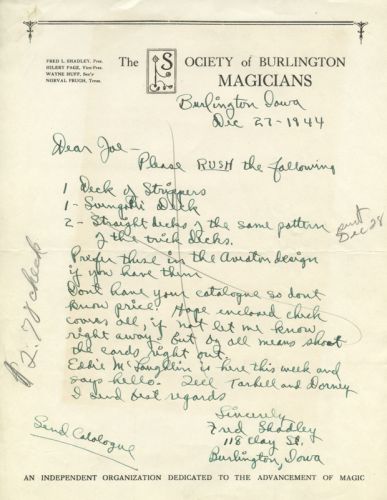 FRED L. SHADLEY, Pres.
HILERY PAGE, Vice-Pres.
WAYNE HUFF, Sec'y
NORVAL PRUGH, Treas.
The SOCIETY of BURLINGTON
MAGICIANS
Burlington Iowa
Dec 27-1944
Dear Joe -
Please RUSH the following
1 Deck of Strippers
1 - Svengali Deck
2 - Straight decks of the same pattern
of the trick decks.
Prefer these in the Aviator design
if you have them
Dont have your catalogue so dont
know price. Hope enclosed check
covers all, if not let me know
right away. But by all means shoot
the cards right out
Eddie McLaughlin is here this week and
says hello. Tell Tarbell and Dorney
I send best regards
Sincerely
Fred Shadley
118 Clay St.
Burlington, Iowa
Send Catalogue
Dec 28
2.78 check
AN INDEPENDENT ORGANIZATION DEDICATED TO THE ADVANCEMENT OF MAGIC